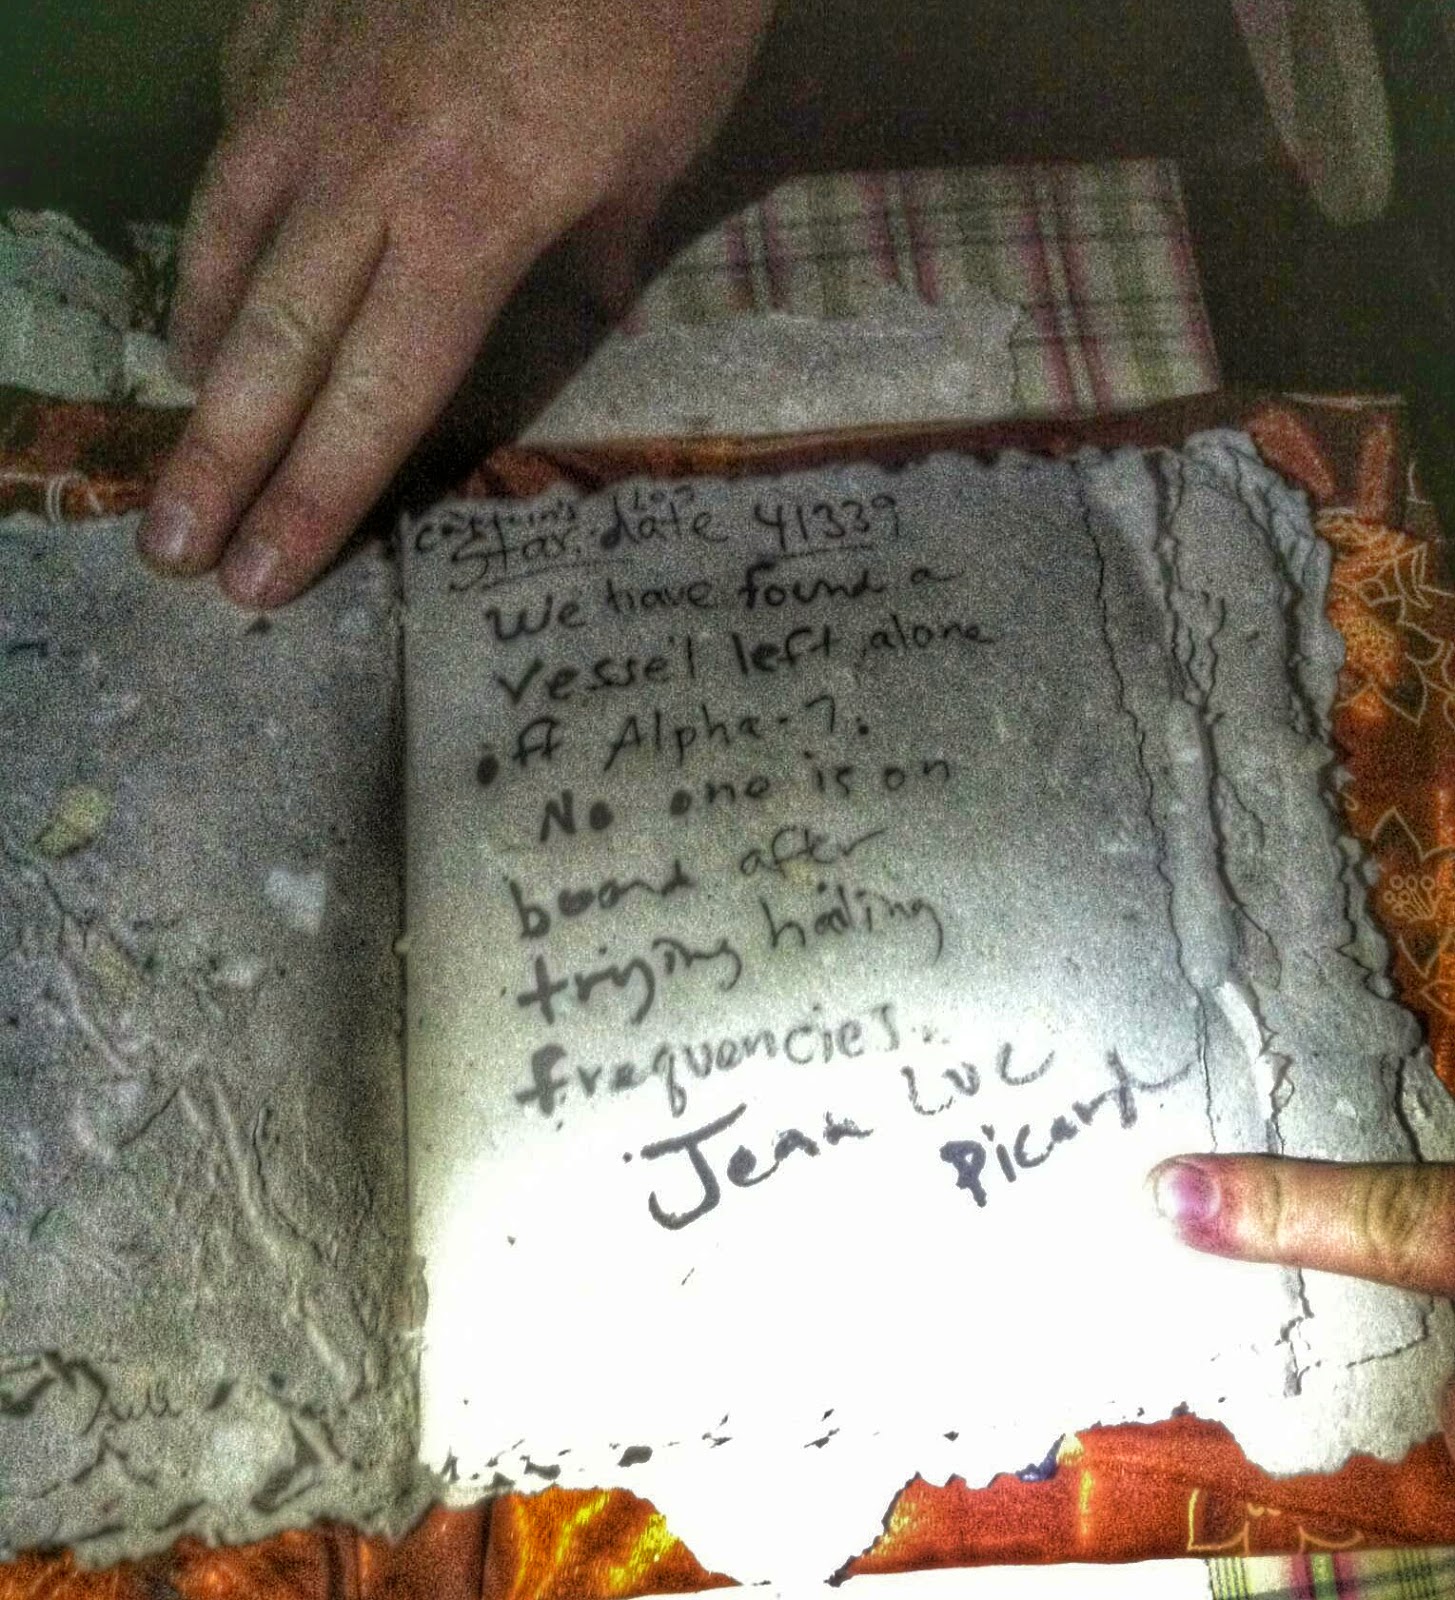 Captain's log
Star date 41339
We have found a
vessel left alone
off Alpha-7.
No one is on
board after
trying hailing
frequencies.
Jean Luc
Picard